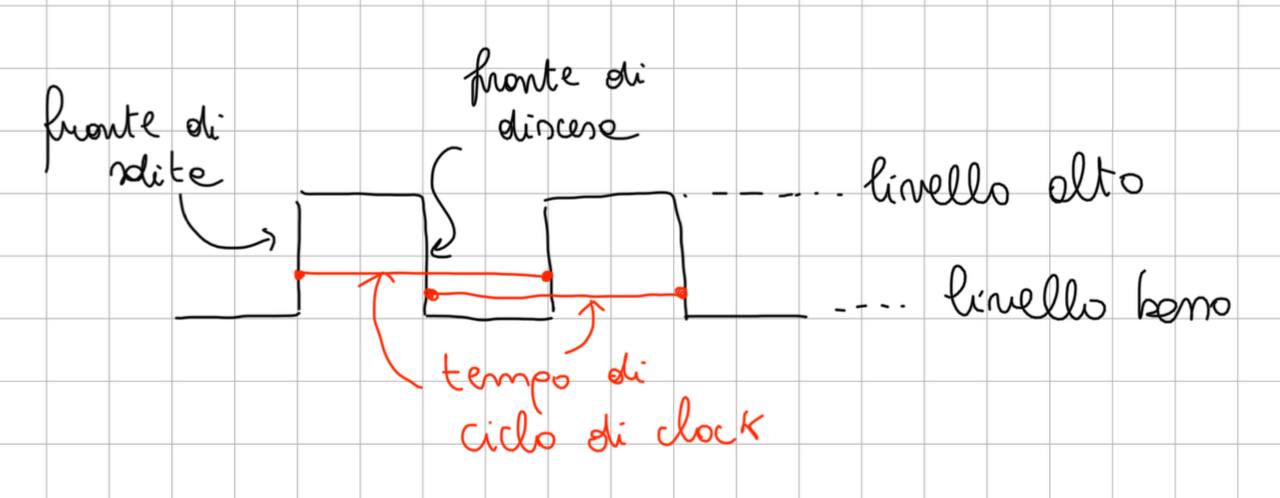 fronte di
salita
fronte di
discesa
livello alto
livello basso
tempo di
ciclo di clock